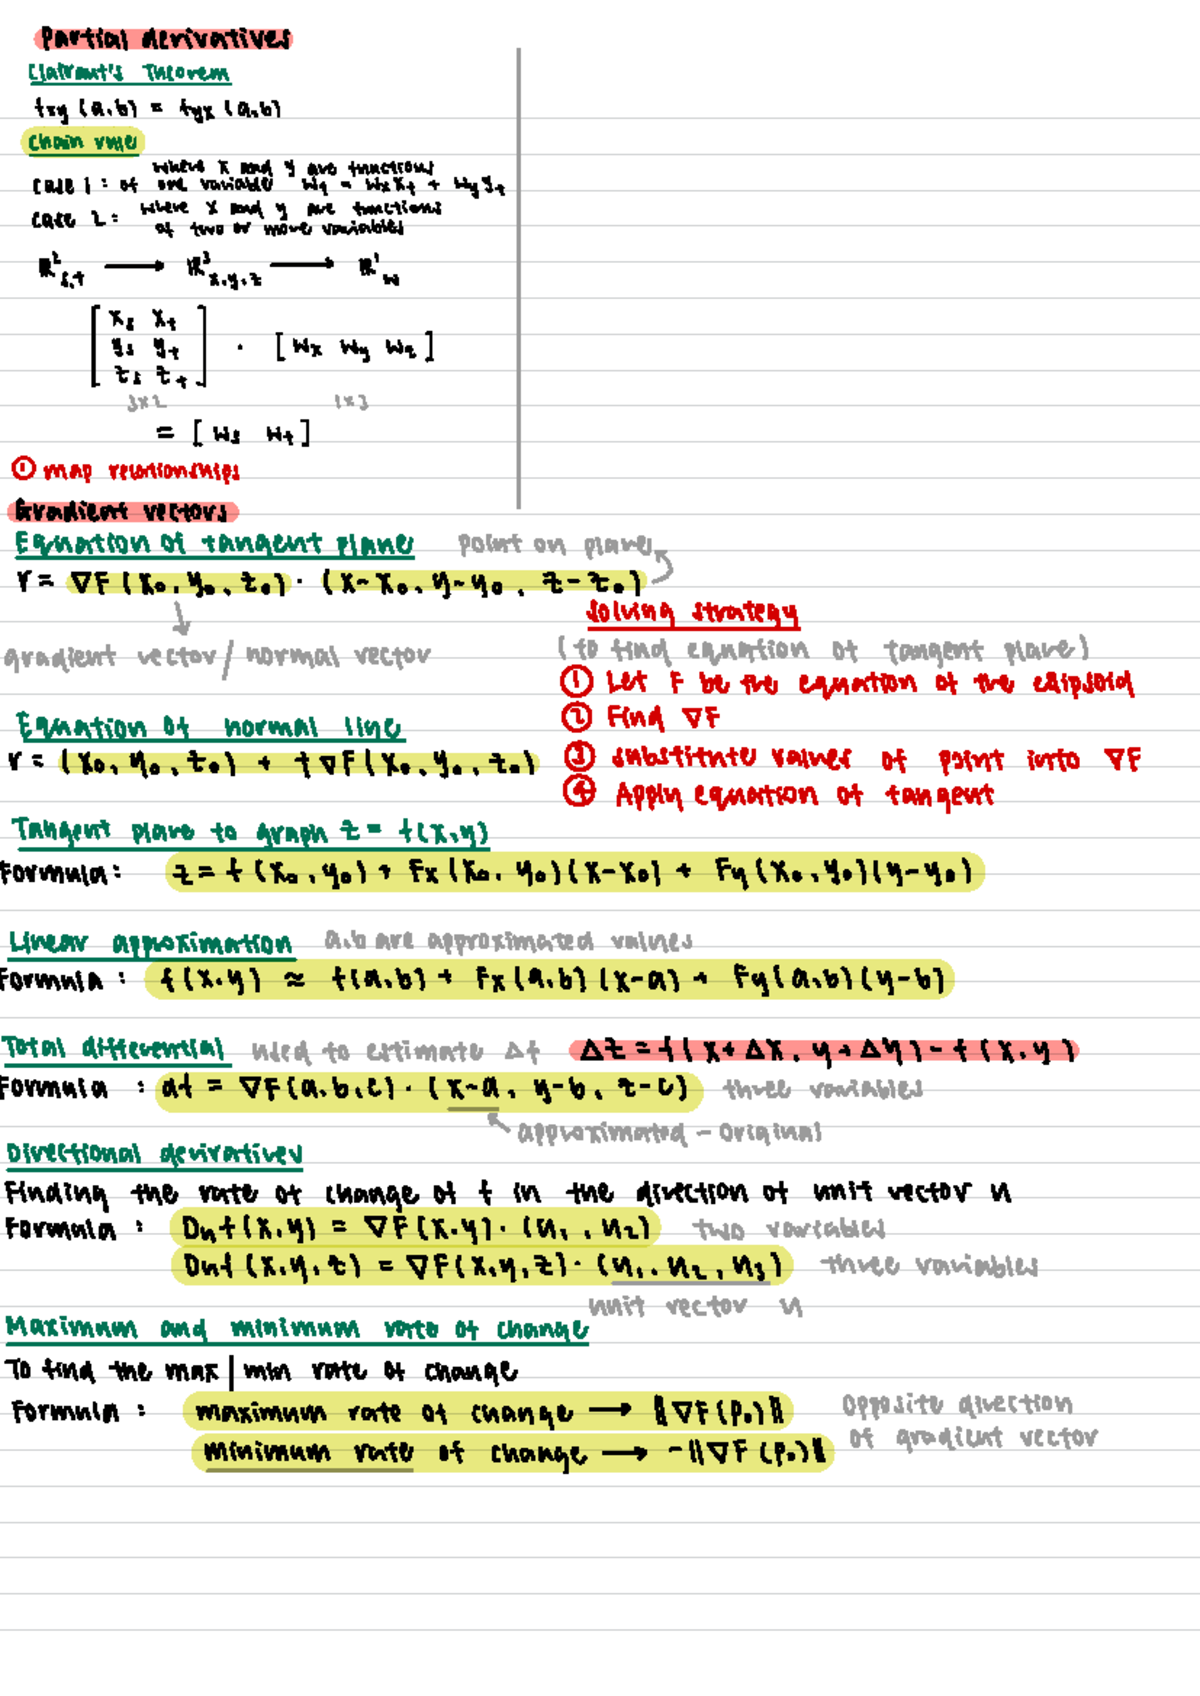 Partial derivatives
Clairaut's Theorem
fxy (a,b) = fyx (a,b)
Chain rule
where x and y are functions
case 1: of one variable Wt = Wx Xt + Wy yt
case 2: where x and y are functions
of two or more variables
ℝ²s,t ⟶ ℝ³x,y,z ⟶ ℝ¹w
[ Xs Xt
ys yt · [ Wx Wy Wz ]
zs zt ]
3x2 1x3
= [ Ws Wt ]
① map relationships
Gradient vectors
Equation of tangent plane point on plane
r = ∇F (x₀, y₀, z₀) · (x-x₀, y-y₀, z-z₀)
solving strategy
gradient vector / normal vector (to find equation of tangent plane)
① Let F be the equation of the ellipsoid
② Find ∇F
Equation of normal line
r = (x₀, y₀, z₀) + t∇F(x₀, y₀, z₀) ③ substitute values of point into ∇F
④ Apply equation of tangent
Tangent plane to graph z = f(x,y)
Formula: z = f (x₀, y₀) + Fx (x₀, y₀)(x-x₀) + Fy (x₀, y₀)(y-y₀)
Linear approximation a,b are approximated values
Formula : f(x,y) ≈ f(a,b) + Fx (a,b) (x-a) + Fy (a,b) (y-b)
Total differential used to estimate Δf Δz = f( x+Δx, y+Δy) - f (x,y)
Formula : df = ∇F(a,b,c) · (x-a, y-b, z-c) three variables
approximated - original
Directional derivatives
Finding the rate of change of f in the direction of unit vector u
Formula : Duf(x,y) = ∇F(x,y) · (u₁, u₂) two variables
Duf (x,y,z) = ∇F(x,y,z) · (u₁, u₂, u₃) three variables
unit vector u
Maximum and minimum rate of change
To find the max | min rate of change
Formula : maximum rate of change → ‖∇F(P₀)‖ opposite direction
minimum rate of change → -‖∇F (P₀)‖ of gradient vector